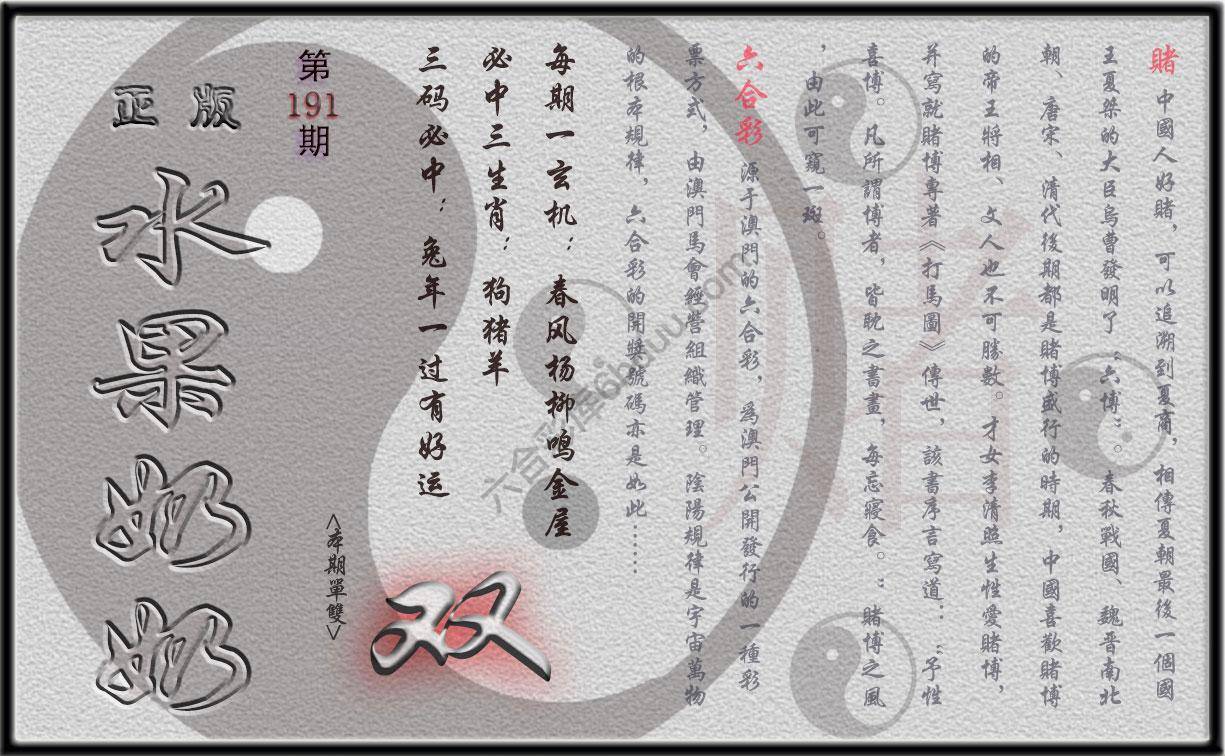 賭 中國人好賭，可以追溯到夏商，相傳夏朝最後一個國
王夏桀的大臣烏曹發明了“六博”。春秋戰國、魏晋南北
朝、唐宋、清代後期都是賭博盛行的時期，中國喜歡賭博
的帝王將相、文人也不可勝數。才女李清照生性愛賭博，
并寫就賭博專著《打馬圖》傳世，該書序言寫道：“予性
喜博。凡所謂博者，皆耽之晝畫，每忘寢食。”賭博之風
，由此可窺一斑。
六合彩 源于澳門的六合彩，為澳門公開發行的一種彩
票方式，由澳門馬會經營組織管理。陰陽規律是宇宙萬物
的根本規律，六合彩的開獎號碼亦是如此……
每期一玄机：春风杨柳鸣金屋
必中三生肖：狗猪羊
三码必中：兔年一过有好运
双
<本期單雙>
第
191
期
正版
水果奶奶
賭
六合彩库6buuu.com